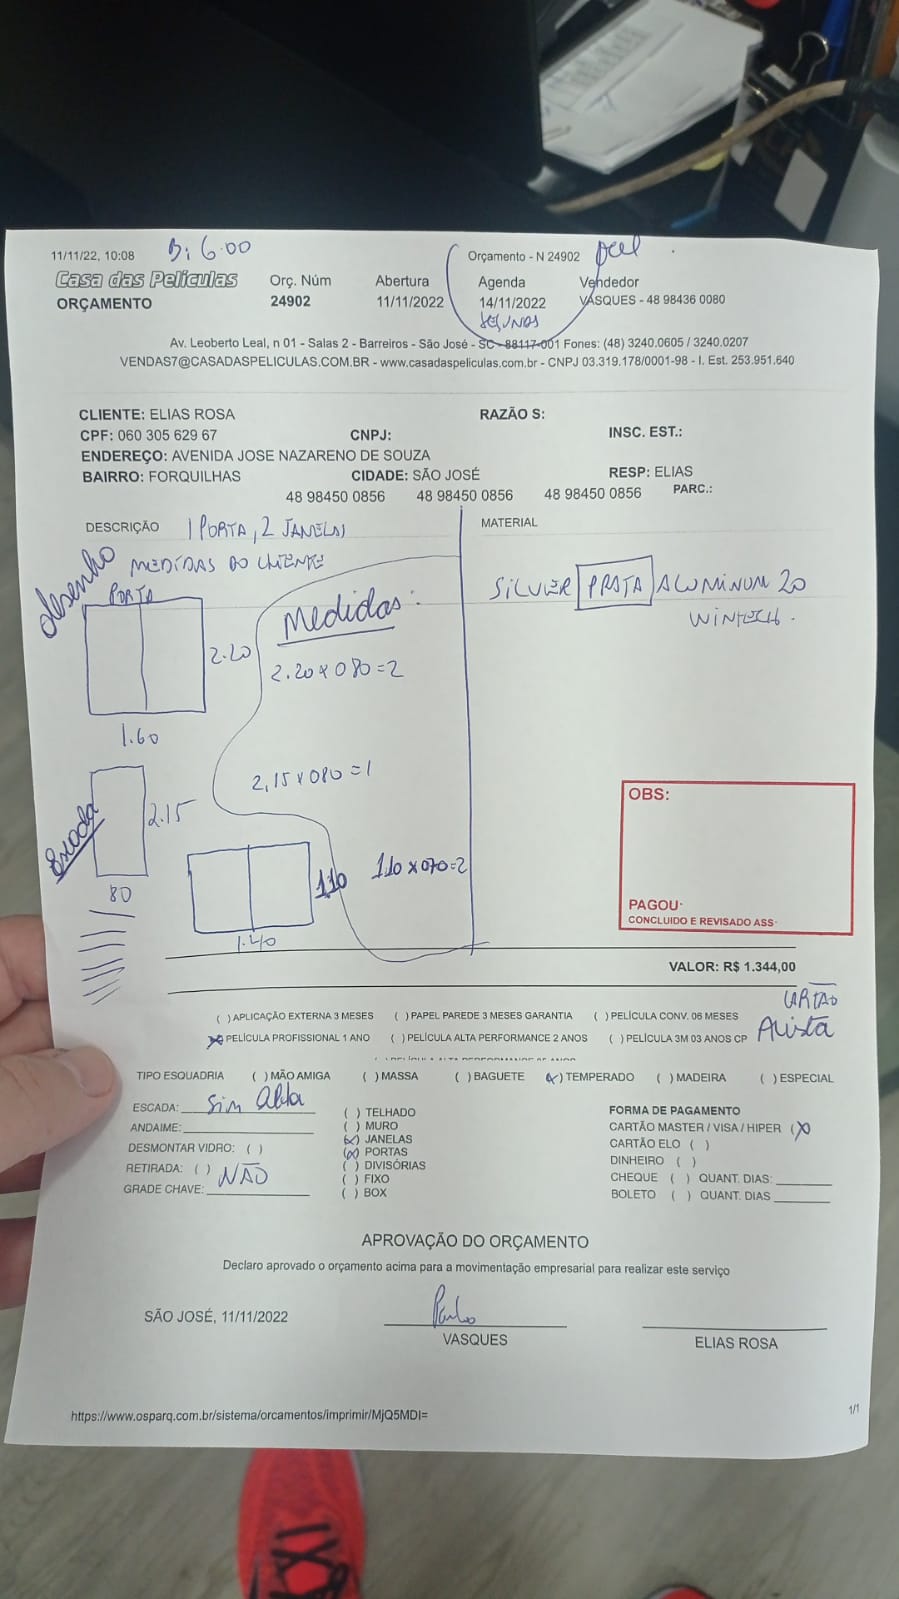 11/11/22, 10:08
B; 6.00
Orçamento - N 24902
Casa das Películas
ORÇAMENTO
Orç. Núm
24902
Abertura
11/11/2022
Agenda
14/11/2022
SEGUNDA
Vendedor
VASQUES - 48 98436 0080
Av. Leoberto Leal, n 01 - Salas 2 - Barreiros - São José - SC - 88117-001 Fones: (48) 3240.0605 / 3240.0207
VENDAS7@CASADASPELICULAS.COM.BR - www.casadaspeliculas.com.br - CNPJ 03.319.178/0001-98 - I. Est. 253.951.640
CLIENTE: ELIAS ROSA
RAZÃO S:
CPF: 060 305 629 67
CNPJ:
INSC. EST.:
ENDEREÇO: AVENIDA JOSE NAZARENO DE SOUZA
BAIRRO: FORQUILHAS
CIDADE: SÃO JOSÉ
RESP: ELIAS
48 98450 0856
48 98450 0856
48 98450 0856
PARC.:
DESCRIÇÃO
1 PORTA, 2 JANELAS
MATERIAL
desenho
MEDIDAS DO CLIENTE
PORTA
Medidas:
SILVER PRATA ALUMINUM 20
WINTECH.
2.20
2.20 x 080 = 2
1.60
2,15 x 080 = 1
2.15
Escada
80
110
110 x 070 = 2
1.40
OBS:
PAGOU:
CONCLUIDO E REVISADO ASS:
VALOR: R$ 1.344,00
CARTÃO
Avista
( ) APLICAÇÃO EXTERNA 3 MESES
( ) PAPEL PAREDE 3 MESES GARANTIA
( ) PELÍCULA CONV. 06 MESES
(x) PELÍCULA PROFISSIONAL 1 ANO
( ) PELÍCULA ALTA PERFORMANCE 2 ANOS
( ) PELÍCULA 3M 03 ANOS CP
TIPO ESQUADRIA
( ) MÃO AMIGA
( ) MASSA
( ) BAGUETE
(x) TEMPERADO
( ) MADEIRA
( ) ESPECIAL
ESCADA: Sim Alta
ANDAIME:
DESMONTAR VIDRO: ( )
RETIRADA: ( ) NÃO
GRADE CHAVE:
( ) TELHADO
( ) MURO
(x) JANELAS
(x) PORTAS
( ) DIVISÓRIAS
( ) FIXO
( ) BOX
FORMA DE PAGAMENTO
CARTÃO MASTER / VISA / HIPER (x)
CARTÃO ELO ( )
DINHEIRO ( )
CHEQUE ( ) QUANT. DIAS:
BOLETO ( ) QUANT. DIAS
APROVAÇÃO DO ORÇAMENTO
Declaro aprovado o orçamento acima para a movimentação empresarial para realizar este serviço
SÃO JOSÉ, 11/11/2022
Paulo
VASQUES
ELIAS ROSA
https://www.osparq.com.br/sistema/orcamentos/imprimir/MjQ5MDI=
1/1